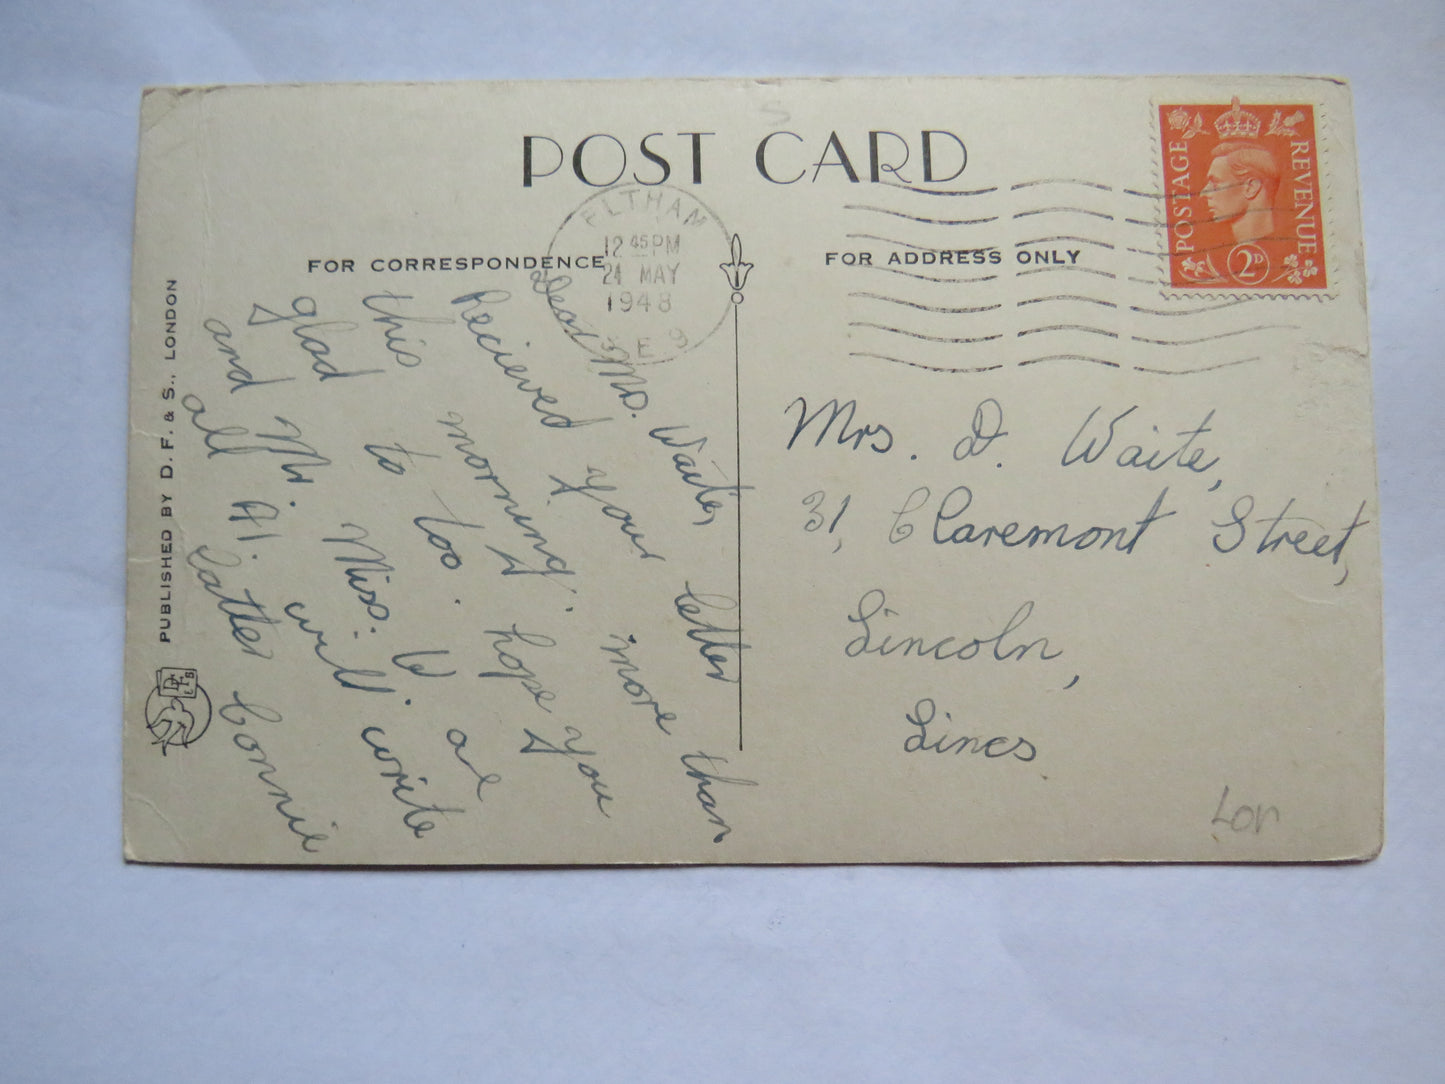 POST CARD
FOR CORRESPONDENCE
FOR ADDRESS ONLY
ELTHAM
12 45 PM
24 MAY
1948
S.E 9
POSTAGE
REVENUE
2D
Dear Mrs. Waites,
Recieved your letter
this morning. more than
glad to too. hope you
and Mr. Miss. W. are
all Al. will write
later Connie
Mrs. D. Waite,
31, Claremont Street,
Lincoln,
Lincs.
Lon
PUBLISHED BY D. F. & S., LONDON